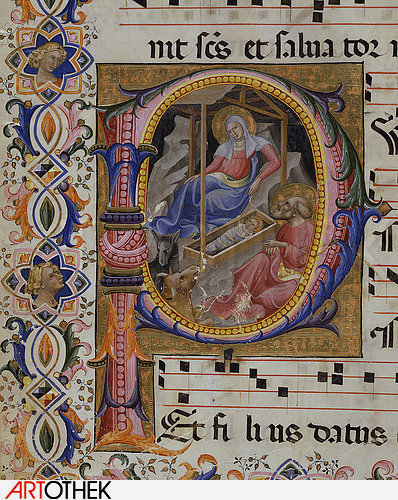 nit scs et salua tor
Et fi li us datus
ARTOTHEK